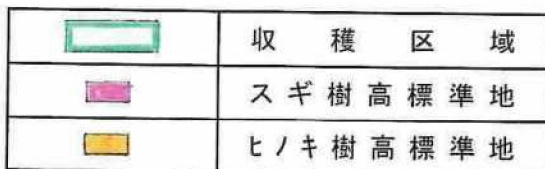 収穫区域
スギ樹高標準地
ヒノキ樹高標準地